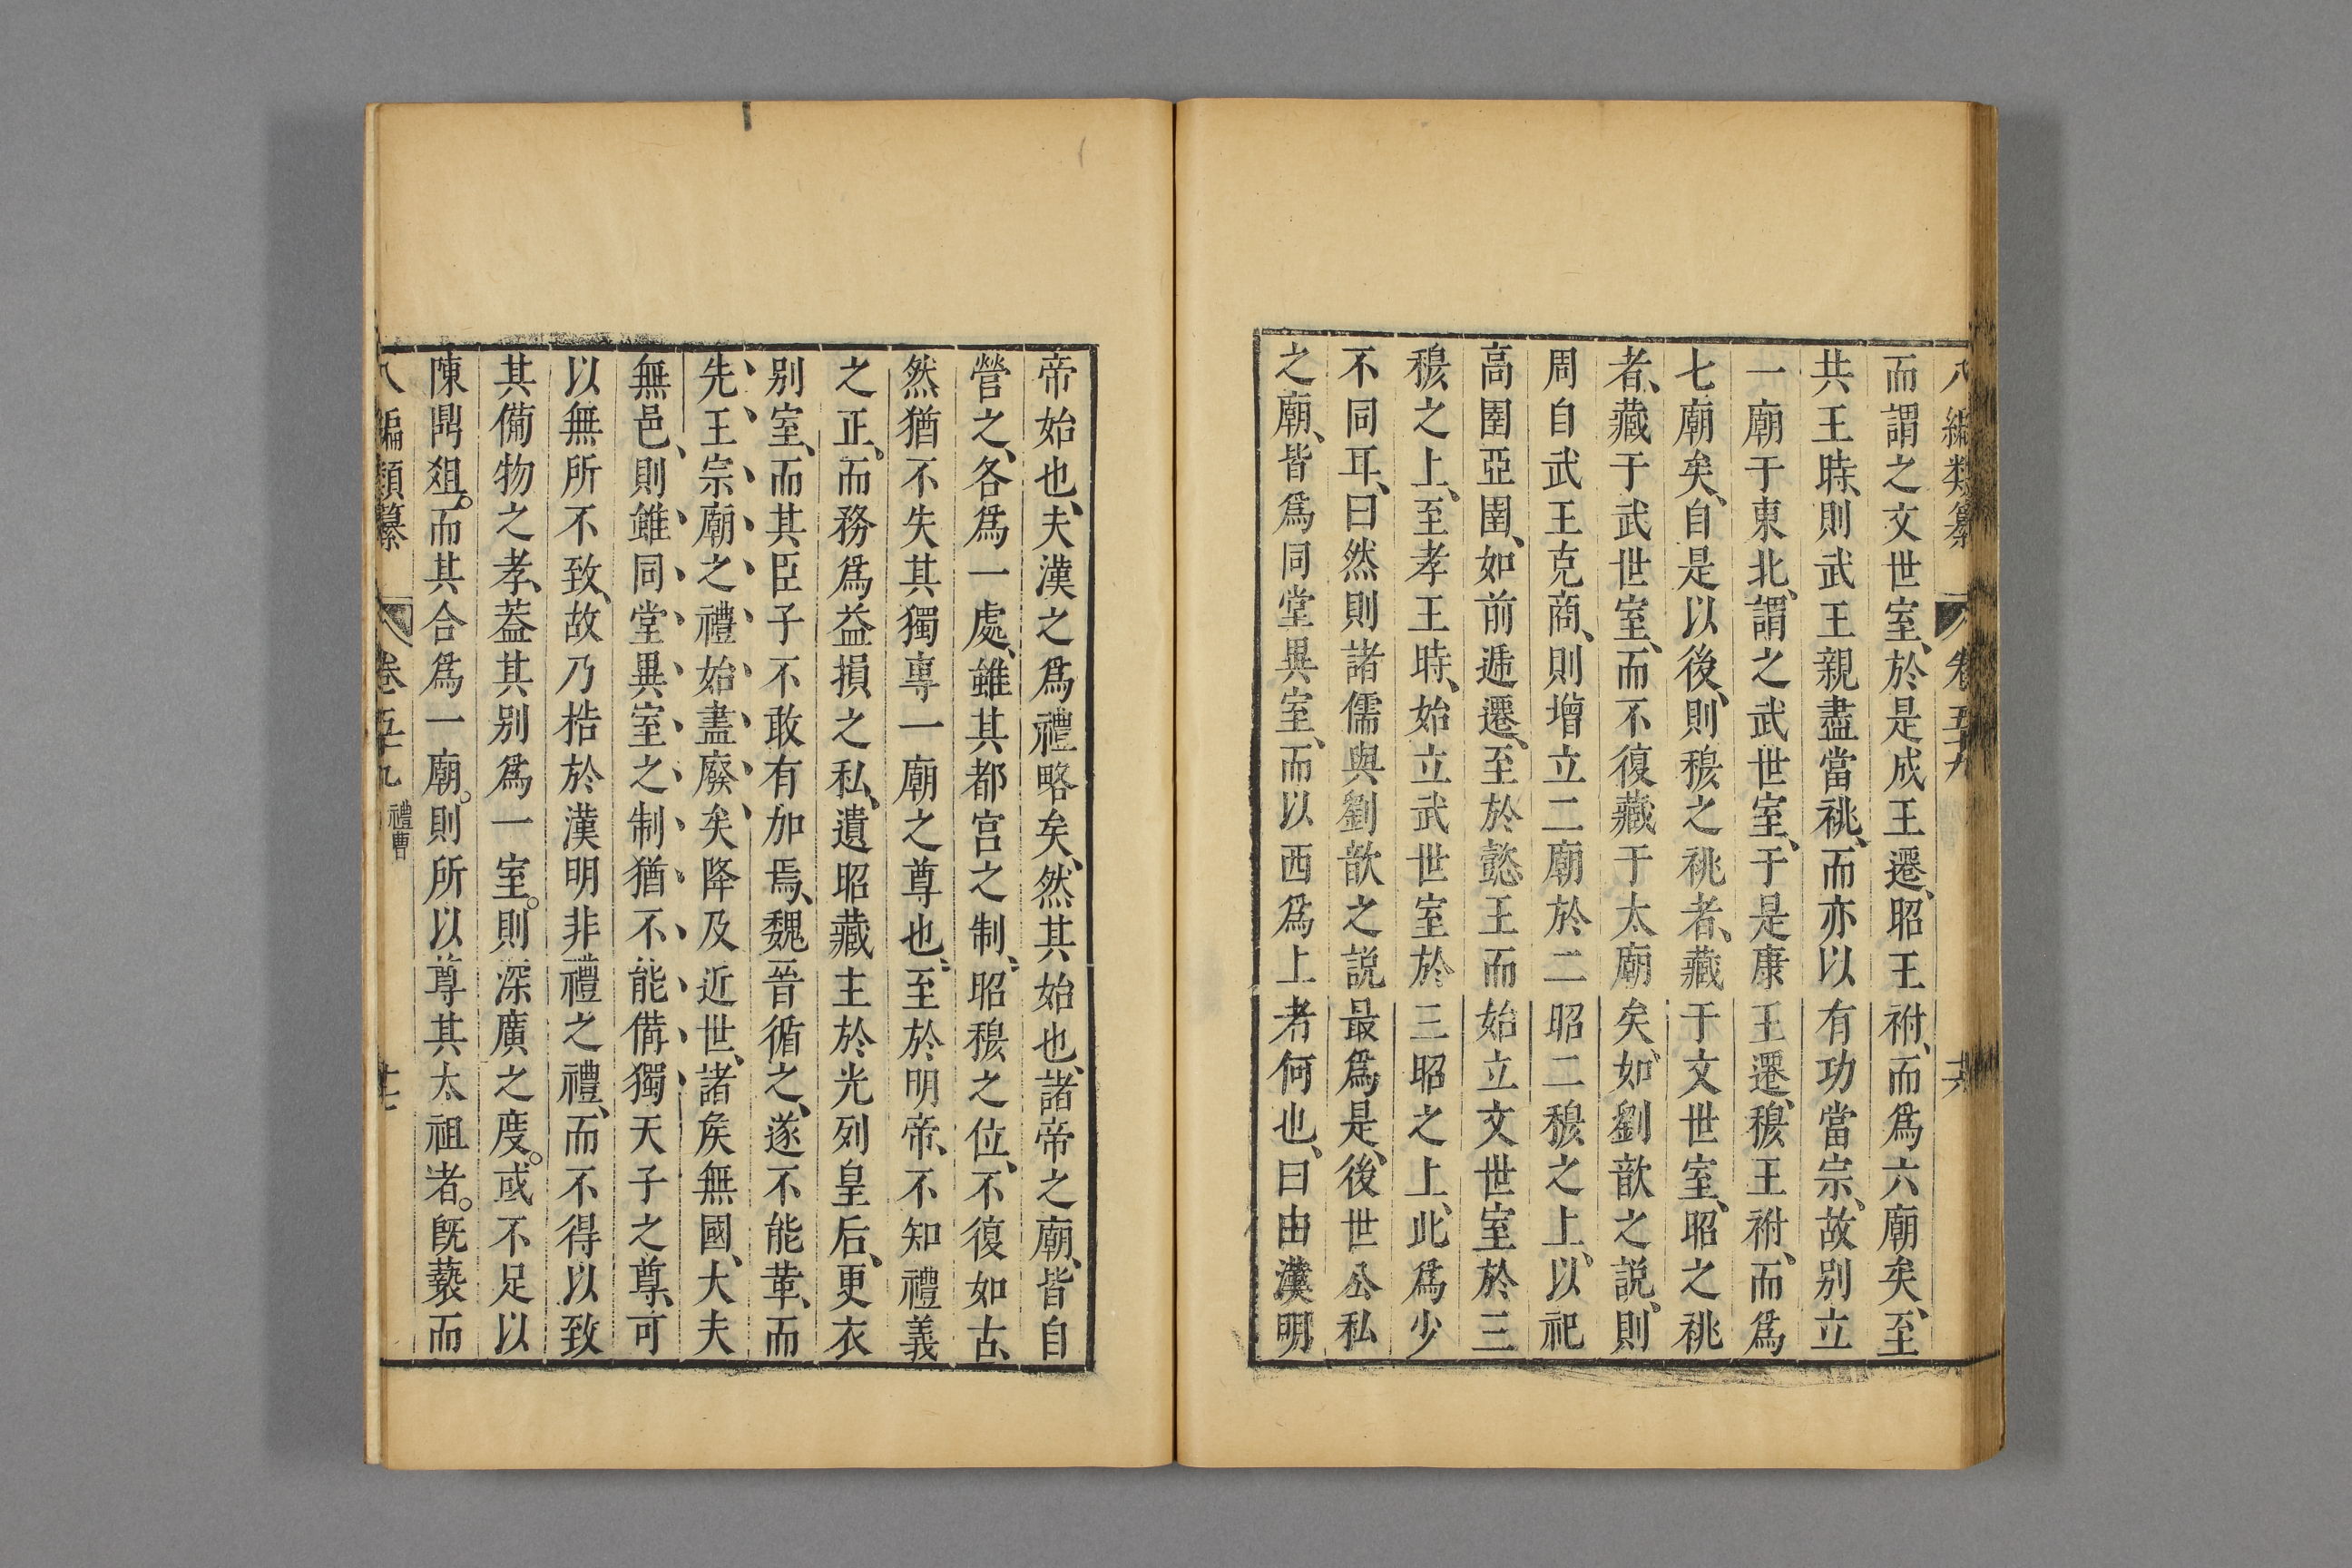 八編類纂 卷五十九 十六
而謂之文世室、於是成王遷、昭王祔、而爲六廟矣、至
共王時、則武王親盡當祧、而亦以有功當宗、故别立
一廟于東北、謂之武世室、于是康王遷、穆王祔、而爲
七廟矣、自是以後、則穆之祧者、藏于文世室、昭之祧
者、藏于武世室、而不復藏于太廟矣、如劉歆之説、則
周自武王克商、則增立二廟於二昭二穆之上、以祀
高圉亞圉、如前遞遷、至於懿王而始立文世室於三
穆之上、至孝王時、始立武世室於三昭之上、此爲少
不同耳、曰然則諸儒與劉歆之説最爲是、後世公私
之廟、皆爲同堂異室、而以西爲上者何也、曰由漢明
帝始也、夫漢之爲禮略矣、然其始也、諸帝之廟、皆自
營之、各爲一處、雖其都宫之制、昭穆之位、不復如古、
然猶不失其獨專一廟之尊也、至於明帝、不知禮義
之正、而務爲益損之私、遺昭藏主於光列皇后、更衣
别室、而其臣子不敢有加焉、魏晉循之、遂不能革、而
先王宗廟之禮始盡廢矣、降及近世、諸矦無國、大夫
無邑、則雖同堂異室之制猶不能備、獨天子之尊、可
以無所不致、故乃梏於漢明非禮之禮、而不得以致
其備物之孝、蓋其别爲一室。則深廣之度。或不足以
陳鼎俎。而其合爲一廟。則所以尊其太祖者。旣䙝而
八編類纂 卷五十九 禮曹 十七